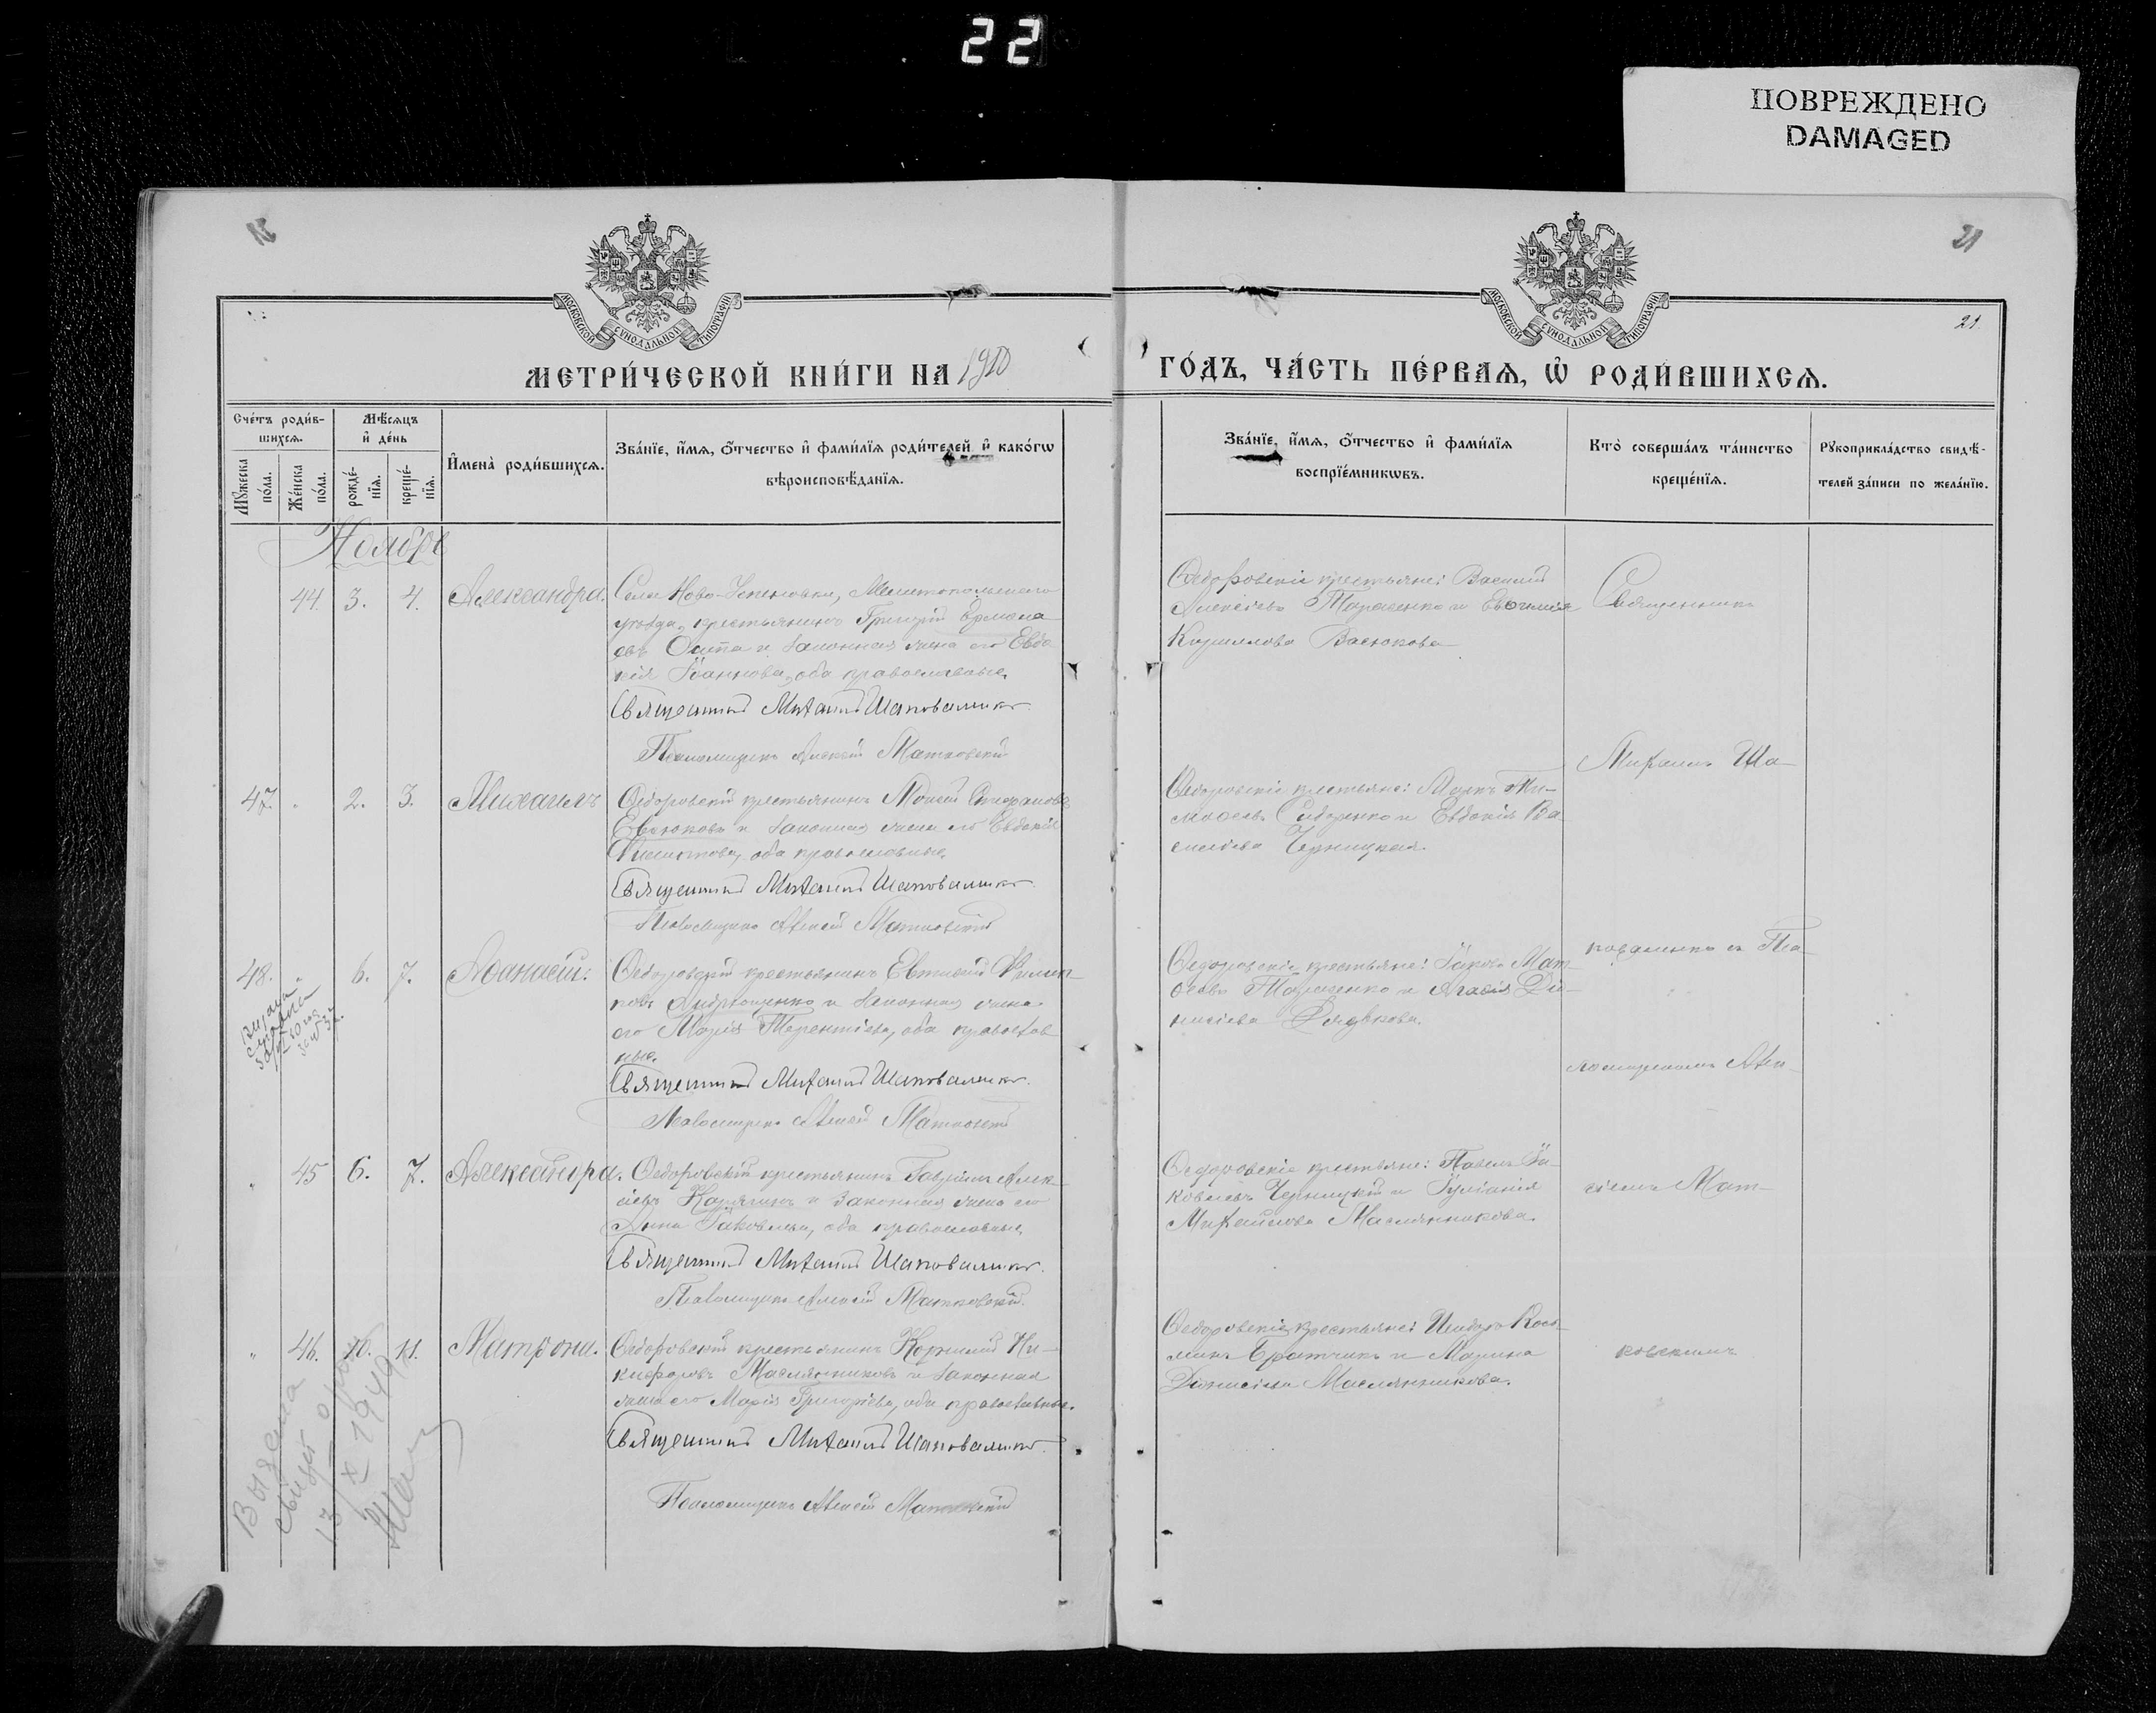 22
ПОВРЕЖДЕНО
DAMAGED
21
МОСКОВСКОЙ СѴНОДАЛЬНОЙ ТИПОГРАФІИ
МОСКОВСКОЙ СѴНОДАЛЬНОЙ ТИПОГРАФІИ
21.
МЕТРИ́ЧЕСКОЙ КНИ́ГИ НА 1910
ГО́ДЪ, ЧА́СТЬ ПЕ́РВАѦ, Ѡ҆ РОДИ́ВШИХСѦ.
Сче́тъ роди́в-
шихсѧ.
Мѣ́сѧцъ
и҆ де́нь
Мꙋ́жеска
по́ла.
Же́нска
по́ла.
рожде́-
нїѧ.
креще́-
нїѧ.
И҆мена̀ роди́вшихсѧ.
Зва́нїе, и҆́мѧ, ѻ҆́тчество и҆ фами́лїѧ роди́телей и҆ како́гѡ
вѣроисповѣ́данїѧ.
Зва́нїе, и҆́мѧ, ѻ҆́тчество и҆ фами́лїѧ
воспрїе́мникѡвъ.
Кто̀ соверша́лъ та́инство
креще́нїѧ.
Рꙋкоприкла́дство свидѣ́-
телей за́писи по жела́нїю.
Ноябрь
44. 3. 4. Александра.
Села Ново-Успеновки, Мелитопольскаго
уѣзда, крестьянинъ Григорій Ермола
евъ и законная жена его Евдо
кія Іоаннова, оба православные
Священникъ Михаилъ Шаповаленко
Псаломщикъ Алексій Матковскій
Ѳедоровскіе крестьяне: Василій
Алексіевъ Тарасенко и Евѳимія
Кириллова Васюкова
Священникъ
47. " 2. 3. Михаилъ
Ѳедоровскій крестьянинъ Моисей Стефановъ
Евсюковъ и законная жена его Евдокія
Филиппова, оба православные.
Священникъ Михаилъ Шаповаленко
Псаломщикъ Алексій Матковскій
Ѳедоровскіе крестьяне: Маркъ Ти-
моѳеевъ и Евдокія Ва
силіева Черницкая.
Михаилъ Ша-
48. " 6. 7. Аѳанасій.
Ѳедоровскій крестьянинъ Евтихій Филип-
повъ Андрющенко и законная жена
его Марія Терентіева, оба православ
ные.
Священникъ Михаилъ Шаповаленко
Псаломщикъ Алексій Матковскій
Ѳедоровскіе крестьяне: Іаковъ Мат-
ѳеевъ Тарасенко и Агаѳія Діо-
нисіева
поваленко съ Пса
ломщикомъ Алек-
" 45 6. 7. Александра.
Ѳедоровскій крестьянинъ Гавріилъ Алек-
сіевъ и законная жена его
Анна Іаковлева, оба православные,
Священникъ Михаилъ Шаповаленко
Псаломщикъ Алексій Матковскій.
Ѳедоровскіе крестьяне: Павелъ Іа-
ковлевъ Черницкій и Іуліанія
Михайлова Маслянникова.
сіемъ Мат-
" 46. 10. 11. Матрона.
Ѳедоровскій крестьянинъ Корнилій Ни-
кифоровъ Маслянниковъ и законная
жена его Марія Григоріева, оба православные.
Священникъ Михаилъ Шаповаленко
Псаломщикъ Алексій Матковскій
Ѳедоровскіе крестьяне: Исидоръ Кось-
минъ Братчикъ и Марина
Діонисіева Маслянникова.
ковскимъ
Выдана
13/X 1949